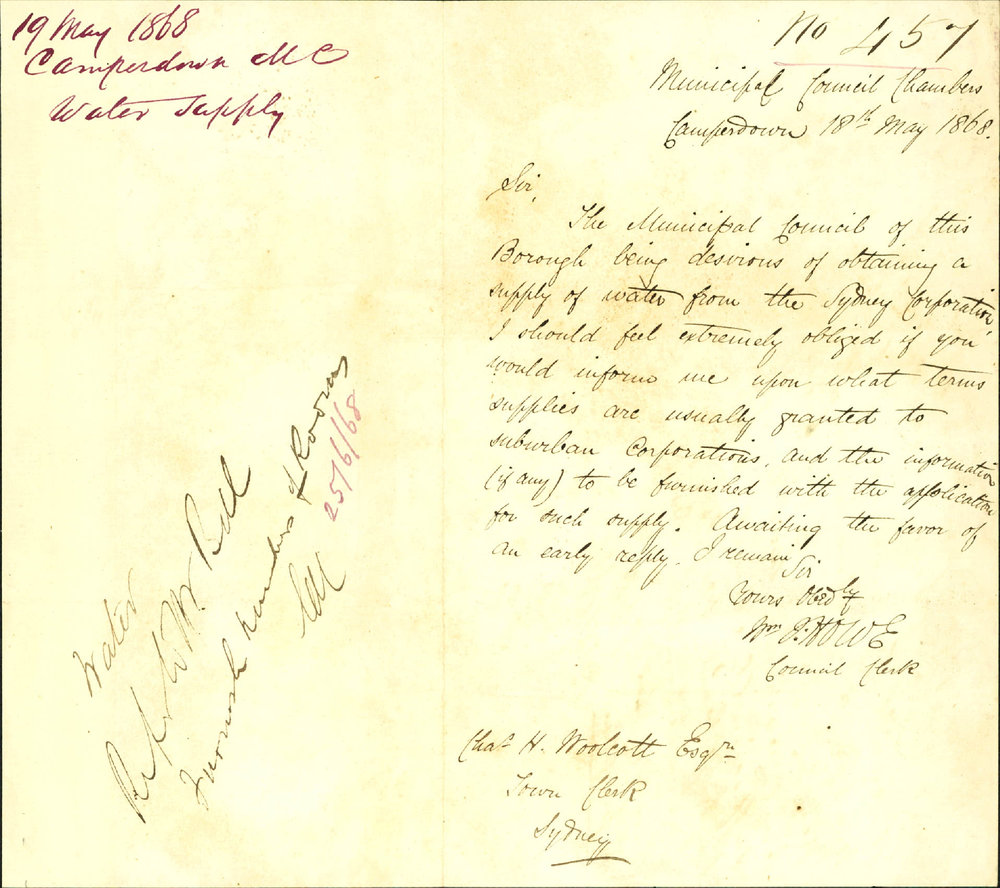 19 May 1868
Camperdown MC
Water Supply
No 457
Municipal Council Chambers
Camperdown 18th May 1868.
Sir,
The Municipal Council of this
Borough being desirous of obtaining a
supply of water from the Sydney Corporation
I should feel extremely obliged if you
would inform me upon what terms
supplies are usually granted to
suburban Corporations, and the information
(if any) to be furnished with the application
for such supply. Awaiting the favor of
an early reply, I remain
Sir
Yours Obedly
Wm J. HOWE
Council Clerk
Chas H. Woolcott Esqre
Town Clerk
Sydney
Water
Refd to Mr Bell
Furnish numbers of Rooms
25/6/68